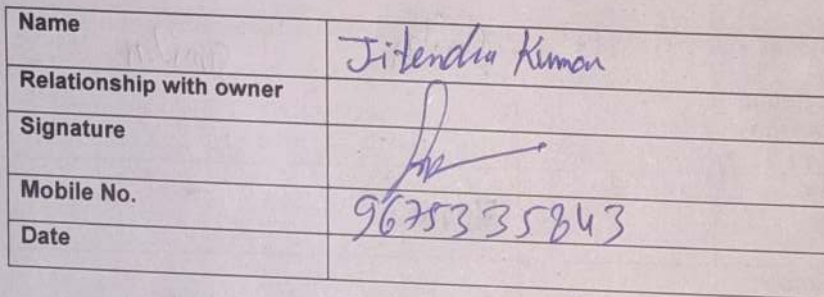 Name Jitendra Kumar
Relationship with owner
Signature
Mobile No. 9675335843
Date